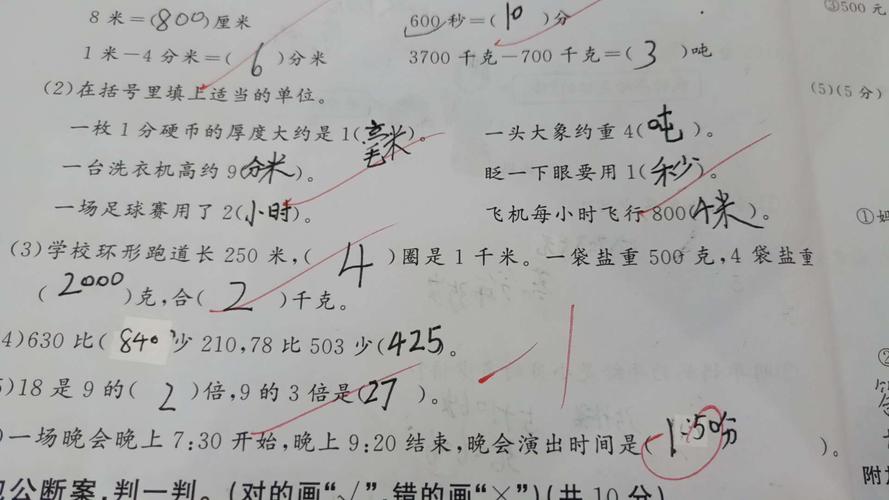 8 米=(800)厘米 600 秒=(10)分 ③500 元
1 米-4 分米=(6)分米 3700 千克-700 千克=(3)吨
(2)在括号里填上适当的单位。 (5)(5 分)
一枚 1 分硬币的厚度大约是 1(毫米)。 一头大象约重 4(吨)。
一台洗衣机高约 9(分米)。 眨一下眼要用 1(秒)。
一场足球赛用了 2(小时)。 飞机每小时飞行 800(千米)。
(3)学校环形跑道长 250 米,(4)圈是 1 千米。一袋盐重 500 克,4 袋盐重
(2000)克,合(2)千克。
4)630 比(840)少 210,78 比 503 少(425)。
)18 是 9 的(2)倍,9 的 3 倍是(27)。
)一场晚会晚上 7:30 开始,晚上 9:20 结束,晚会演出时间是(1:50分)。
公断案,判一判。(对的画“√”,错的画“×”)(共 10 分)
附